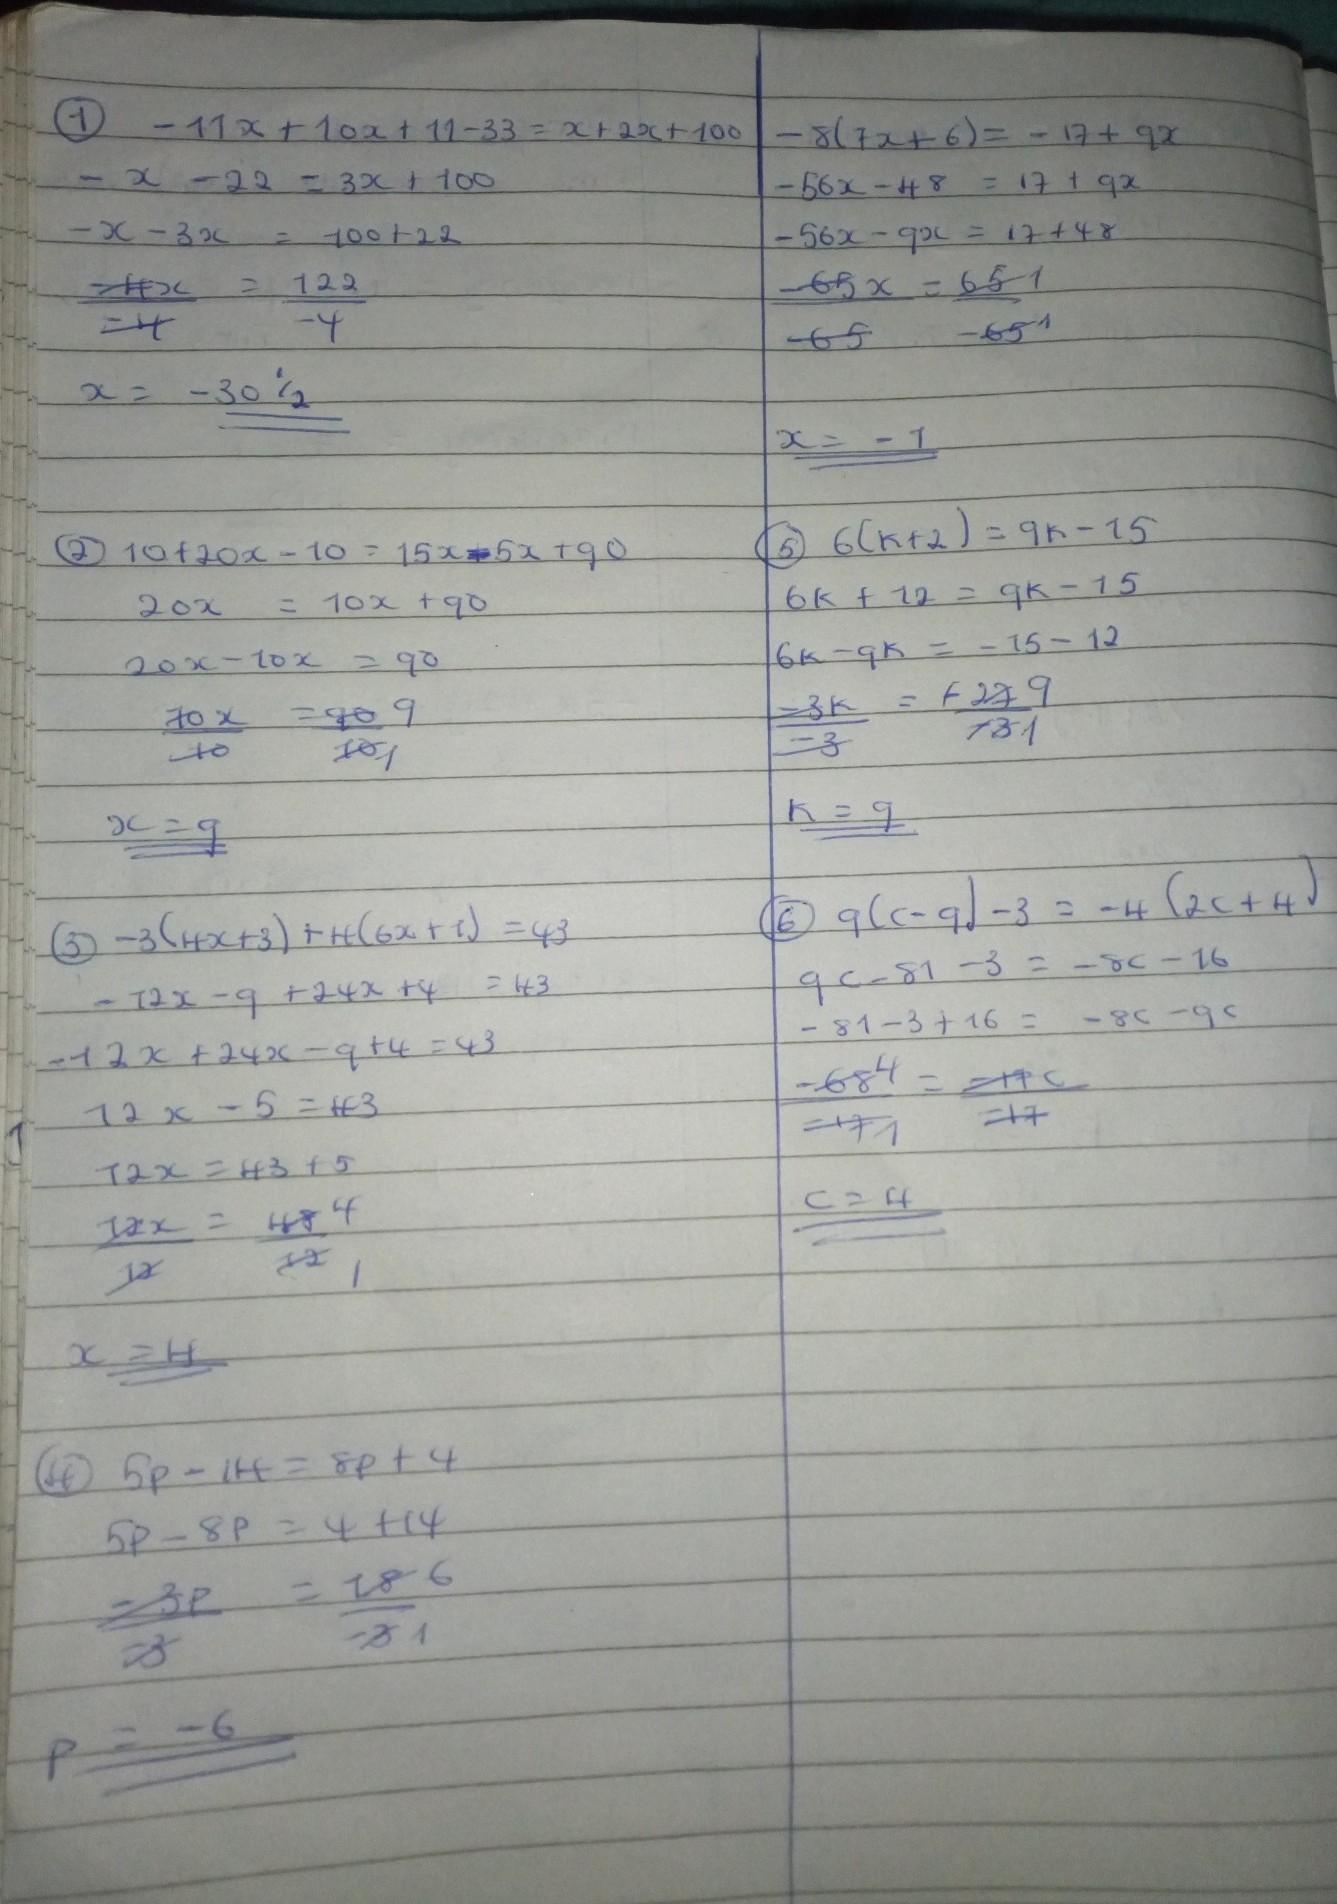 ① -11x + 10x + 11 - 33 = x + 2x + 100
- x - 22 = 3x + 100
-x - 3x = 100 + 22
-4x = 122
-4 -4
x = -30 ½
② 10 + 20x - 10 = 15x - 5x + 90
20x = 10x + 90
20x - 10x = 90
10x = 90 9
10 10 1
x = 9
③ -3(4x+3) + 4(6x+1) = 43
-12x - 9 + 24x + 4 = 43
-12x + 24x - 9 + 4 = 43
12x - 5 = 43
12x = 43 + 5
12x = 48 4
12 12 1
x = 4
④ 5p - 14 = 8p + 4
5p - 8p = 4 + 14
-3p = 18 6
-3 -3 1
p = -6
-8(7x + 6) = -17 + 9x
-56x - 48 = 17 + 9x
-56x - 9x = 17 + 48
-65x = 65 1
-65 -65 1
x = -1
⑤ 6(k+2) = 9k - 15
6k + 12 = 9k - 15
6k - 9k = -15 - 12
-3k = -27 9
-3 -3 1
k = 9
⑥ 9(c-9) - 3 = -4(2c + 4)
9c - 81 - 3 = -8c - 16
-81 - 3 + 16 = -8c - 9c
-68 4 = -17c
-17 1 -17
c = 4